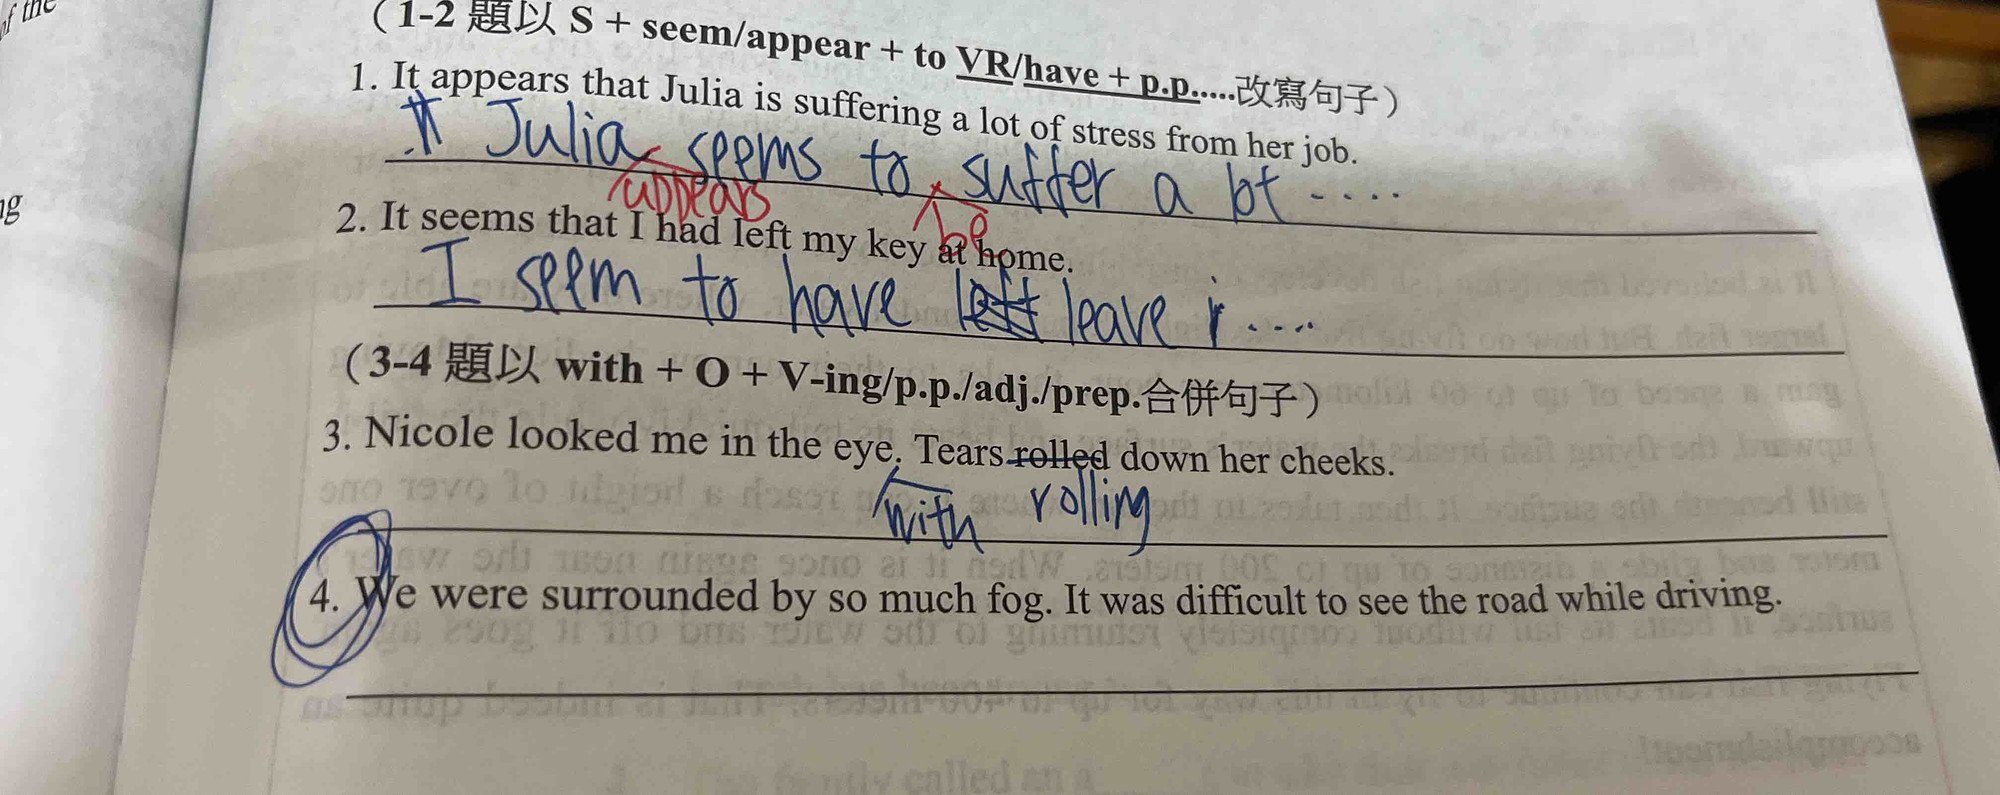 of the
（1-2 題以 S + seem/appear + to VR/have + p.p.....改寫句子）
1. It appears that Julia is suffering a lot of stress from her job.
Julia seems to suffer a lot ....
appears be
2. It seems that I had left my key at home.
I seem to have left leave ....
（3-4 題以 with + O + V-ing/p.p./adj./prep.合併句子）
3. Nicole looked me in the eye. Tears rolled down her cheeks.
with rolling
4. We were surrounded by so much fog. It was difficult to see the road while driving.